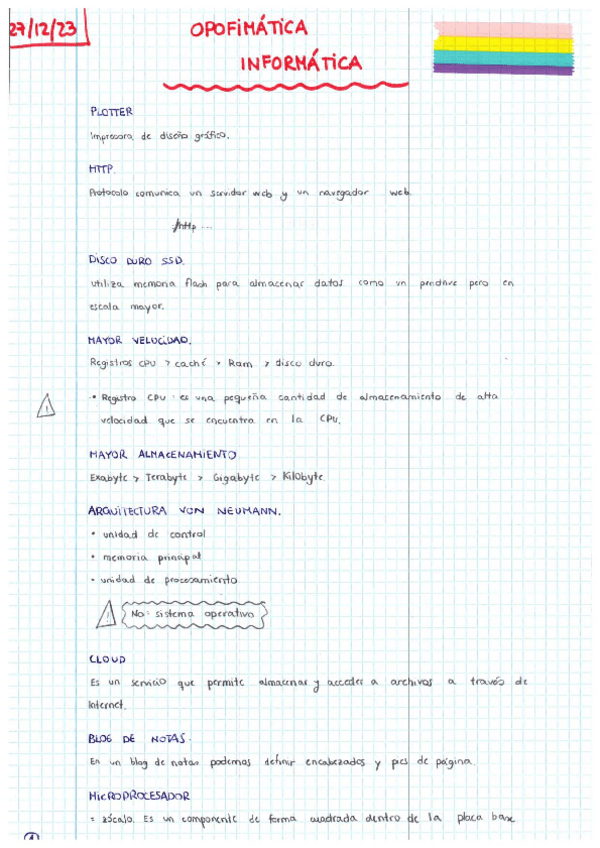 27/12/23
OPOFIMÁTICA
INFORMÁTICA
PLOTTER
Impresora de diseño gráfico.
HTTP.
Protocolo comunica un servidor web y un navegador web.
/http...
DISCO DURO SSD.
Utiliza memoria flash para almacenar datos como un pendrive pero en
escala mayor.
MAYOR VELOCIDAD.
Registros CPU > caché > Ram > disco duro.
• Registro CPU: es una pequeña cantidad de almacenamiento de alta
velocidad que se encuentra en la CPU.
MAYOR ALMACENAMIENTO
Exabyte > Terabyte > Gigabyte > Kilobyte.
ARQUITECTURA VON NEUMANN.
• unidad de control
• memoria principal
• unidad de procesamiento
No: sistema operativo
CLOUD
Es un servicio que permite almacenar y acceder a archivos a través de
Internet.
BLOG DE NOTAS.
En un blog de notas podemos definir encabezados y pies de página.
MICROPROCESADOR
= zócalo. Es un componente de forma cuadrada dentro de la placa base
1